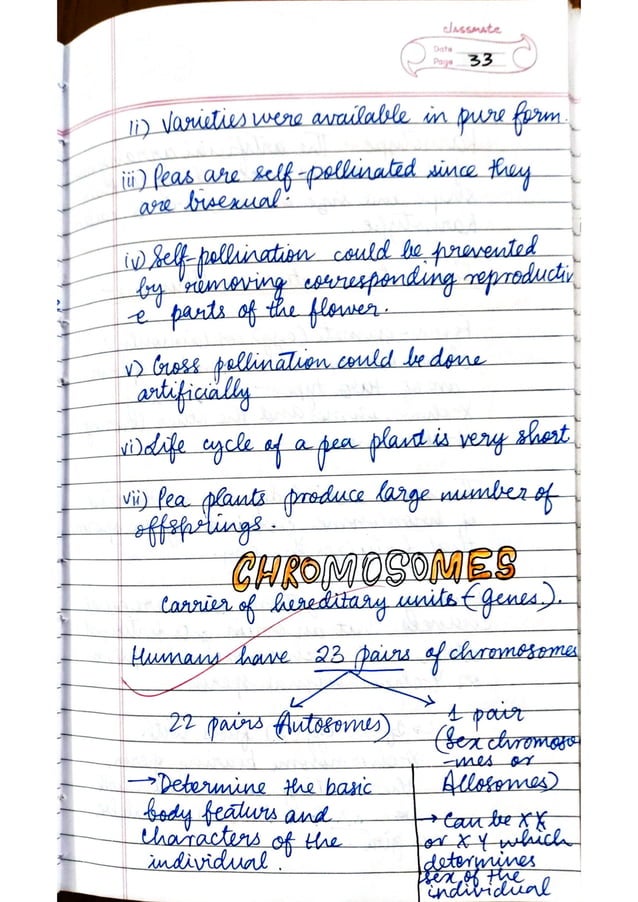 classmate
Date
Page 33
ii) Varieties were available in pure form.
iii) Peas are self-pollinated since they
are bisexual.
iv) Self-pollination could be prevented
by removing corresponding reproductiv
e parts of the flower.
v) Cross pollination could be done
artificially
vi) Life cycle of a pea plant is very short
vii) Pea plants produce large number of
offsprings.
CHROMOSOMES
Carrier of hereditary units (genes.).
Humans have 23 pairs of chromosomes
22 pairs (Autosomes)
1 pair
(Sex chromoso
-mes or
Allosomes)
→ Determine the basic
body featurs and
characters of the
individual.
→ Can be XX
or XY which
determines
sex of the
individual